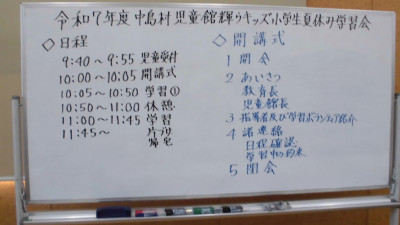 令和7年度 中島村児童館輝らキッズ小学生夏休み学習会
◇日程
9:40〜9:55 児童受付
10:00〜10:05 開講式
10:05〜10:50 学習①
10:50〜11:00 休憩
11:00〜11:45 学習
11:45〜 片付
帰宅
◇開講式
1 開会
2 あいさつ
教育長
児童館長
3 指導者及び学習ボランティア紹介
4 諸連絡
日程確認
学習中の約束
5 閉会